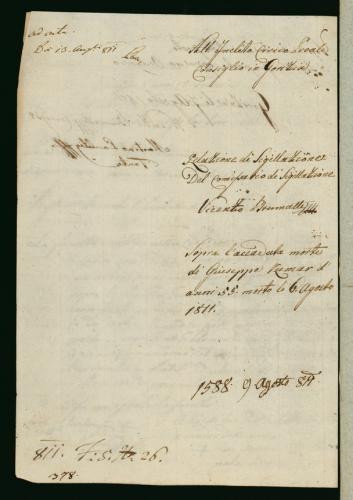 ad acta
All' Inclito Civico Locale
Consiglio in Gorizia
Relazione di Sigillazione
Del Comissario di Sigillazione
Vicentio Brumatti
Sopra l'accaduta morte
di Giuseppe Kumar d'
anni 55. morto li 6 Agosto
1811.
1588. 9 Agosto 811
811. F: 5. 26.
378.